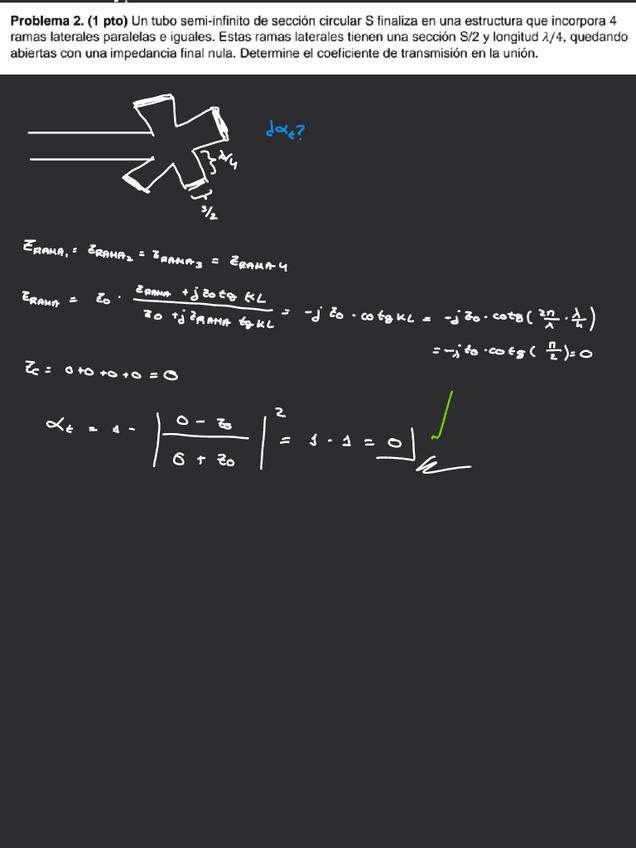 Problema 2. (1 pto) Un tubo semi-infinito de sección circular S finaliza en una estructura que incorpora 4
ramas laterales paralelas e iguales. Estas ramas laterales tienen una sección S/2 y longitud λ/4, quedando
abiertas con una impedancia final nula. Determine el coeficiente de transmisión en la unión.
d∝t?
λ/4
S/2
ZRAMA1 = ZRAMA2 = ZRAMA3 = ZRAMA4
ZRAMA = Z0 · (ZRAMA + jZ0 tg KL) / (Z0 + jZRAMA tg KL) = -j Z0 · cotg KL = -j Z0 · cotg(2π/λ · λ/4)
= -j Z0 · cotg(π/2) = 0
Zc = 0+0+0+0 = 0
∝t = 1 - |(0 - Z0) / (0 + Z0)|² = 1 - 1 = 0